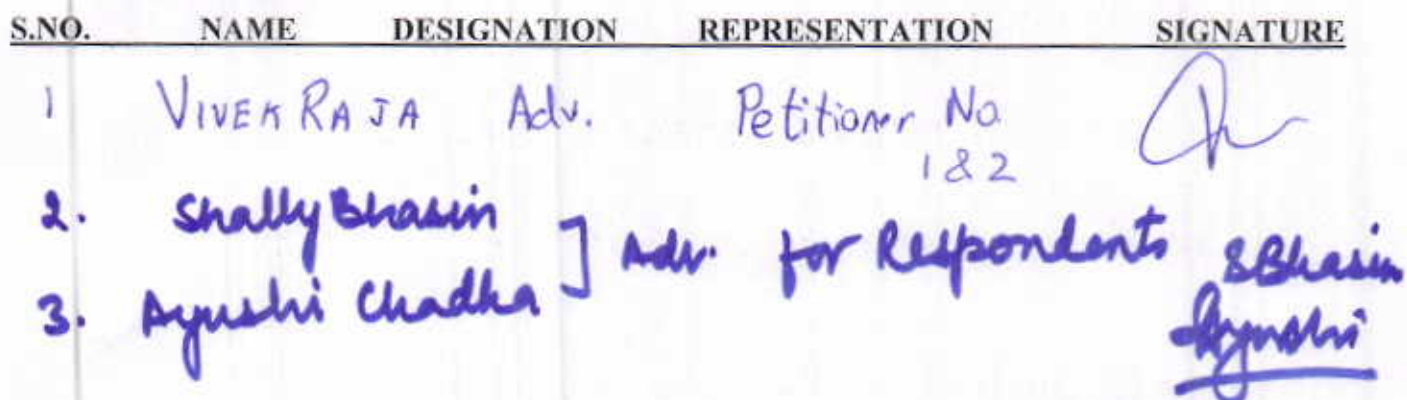 S.NO. NAME DESIGNATION REPRESENTATION SIGNATURE
1 VIVEK RAJA Adv. Petitioner No.
1 & 2
2. Shally Bhasin ] Adv. for Respondents SBhasin
3. Ayushi Chadha Ayushi